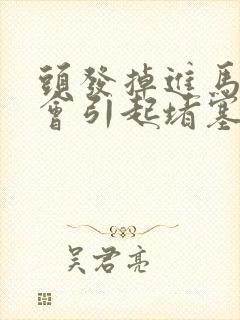 頭發掉進馬
會引起堵塞
吴君亮